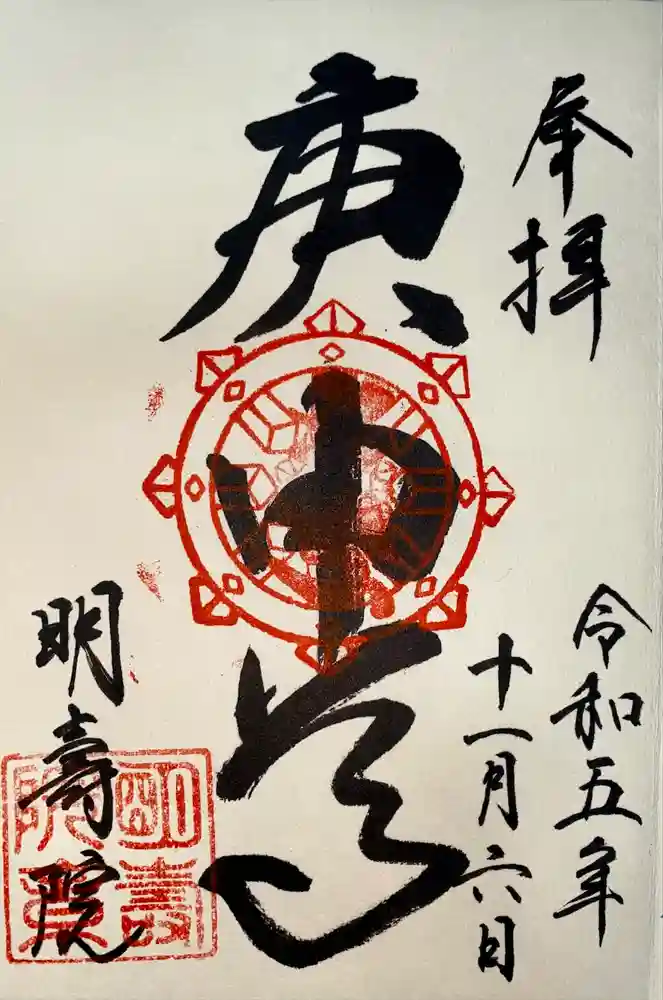 奉拝
令和五年
十一月六日
庚申尊
明壽院
明壽院